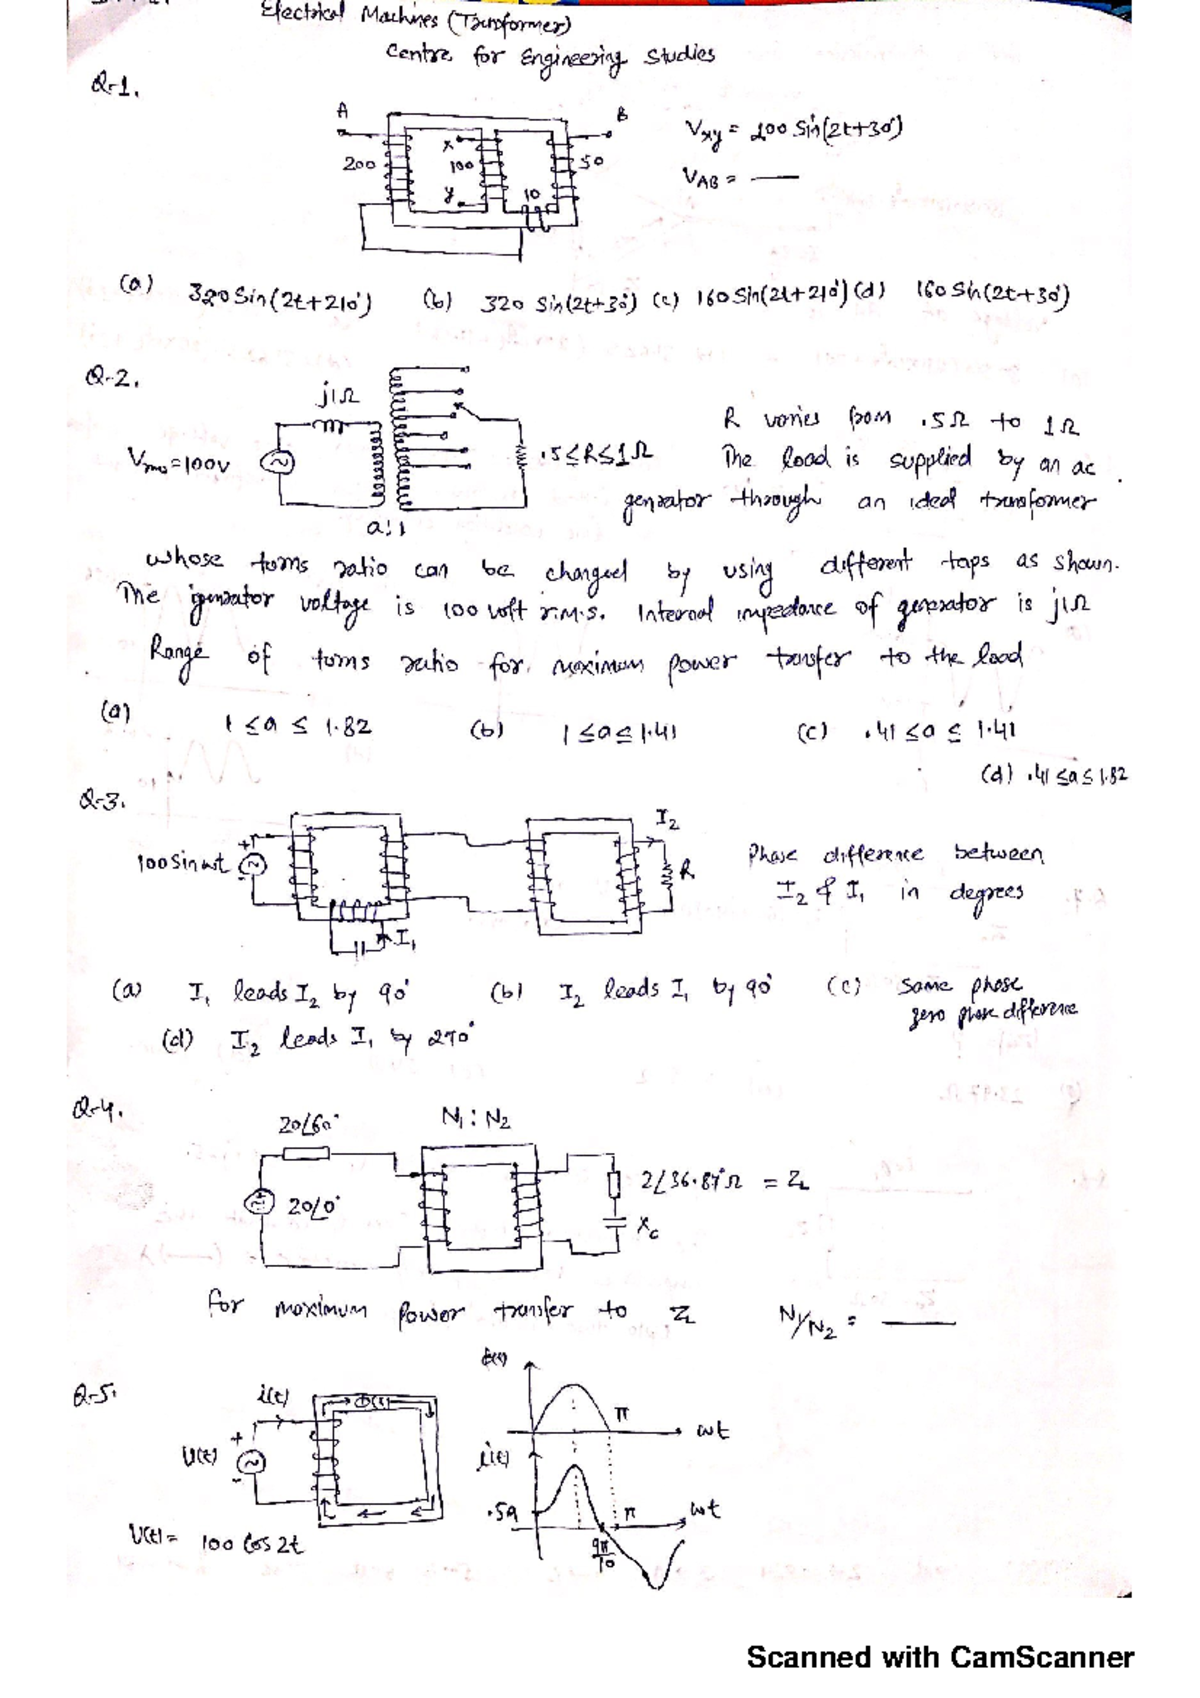 Electrical Machines (Transformer)
Centre for Engineering Studies
Q-1.
A
B
200
x
100
y
50
10
Vxy = 200 Sin(2t+30°)
VAB = ___
(a) 320 Sin(2t+210°) (b) 320 Sin(2t+30°) (c) 160 Sin(2t+210°) (d) 160 Sin(2t+30°)
Q-2.
j1Ω
Vrms = 100V
.5≤R≤1Ω
a:1
R varies from .5Ω to 1Ω
The load is supplied by an ac
generator through an ideal transformer
whose turns ratio can be changed by using different taps as shown.
The generator voltage is 100 volt r.m.s. Internal impedance of generator is j1Ω
Range of turns ratio for maximum power transfer to the load
(a) 1 ≤ a ≤ 1.82 (b) 1 ≤ a ≤ 1.41 (c) .41 ≤ a ≤ 1.41
(d) .41 ≤ a ≤ 1.82
Q-3.
100 sin wt
+
-
I2
R
I1
Phase difference between
I2 & I1 in degrees
(a) I1 leads I2 by 90° (b) I2 leads I1 by 90° (c) Same phase
zero phase difference
(d) I2 leads I1 by 270°
Q-4.
20∠60°
N1 : N2
20∠0°
2∠36.87°Ω = ZL
Xc
for maximum power transfer to ZL N1/N2 = ____
Q-5.
i(t)
Φ(t)
V(t)
+
-
V(t) = 100 Cos 2t
Φ(t)
π
wt
i(t)
.5A
π
wt
9π/10
Scanned with CamScanner